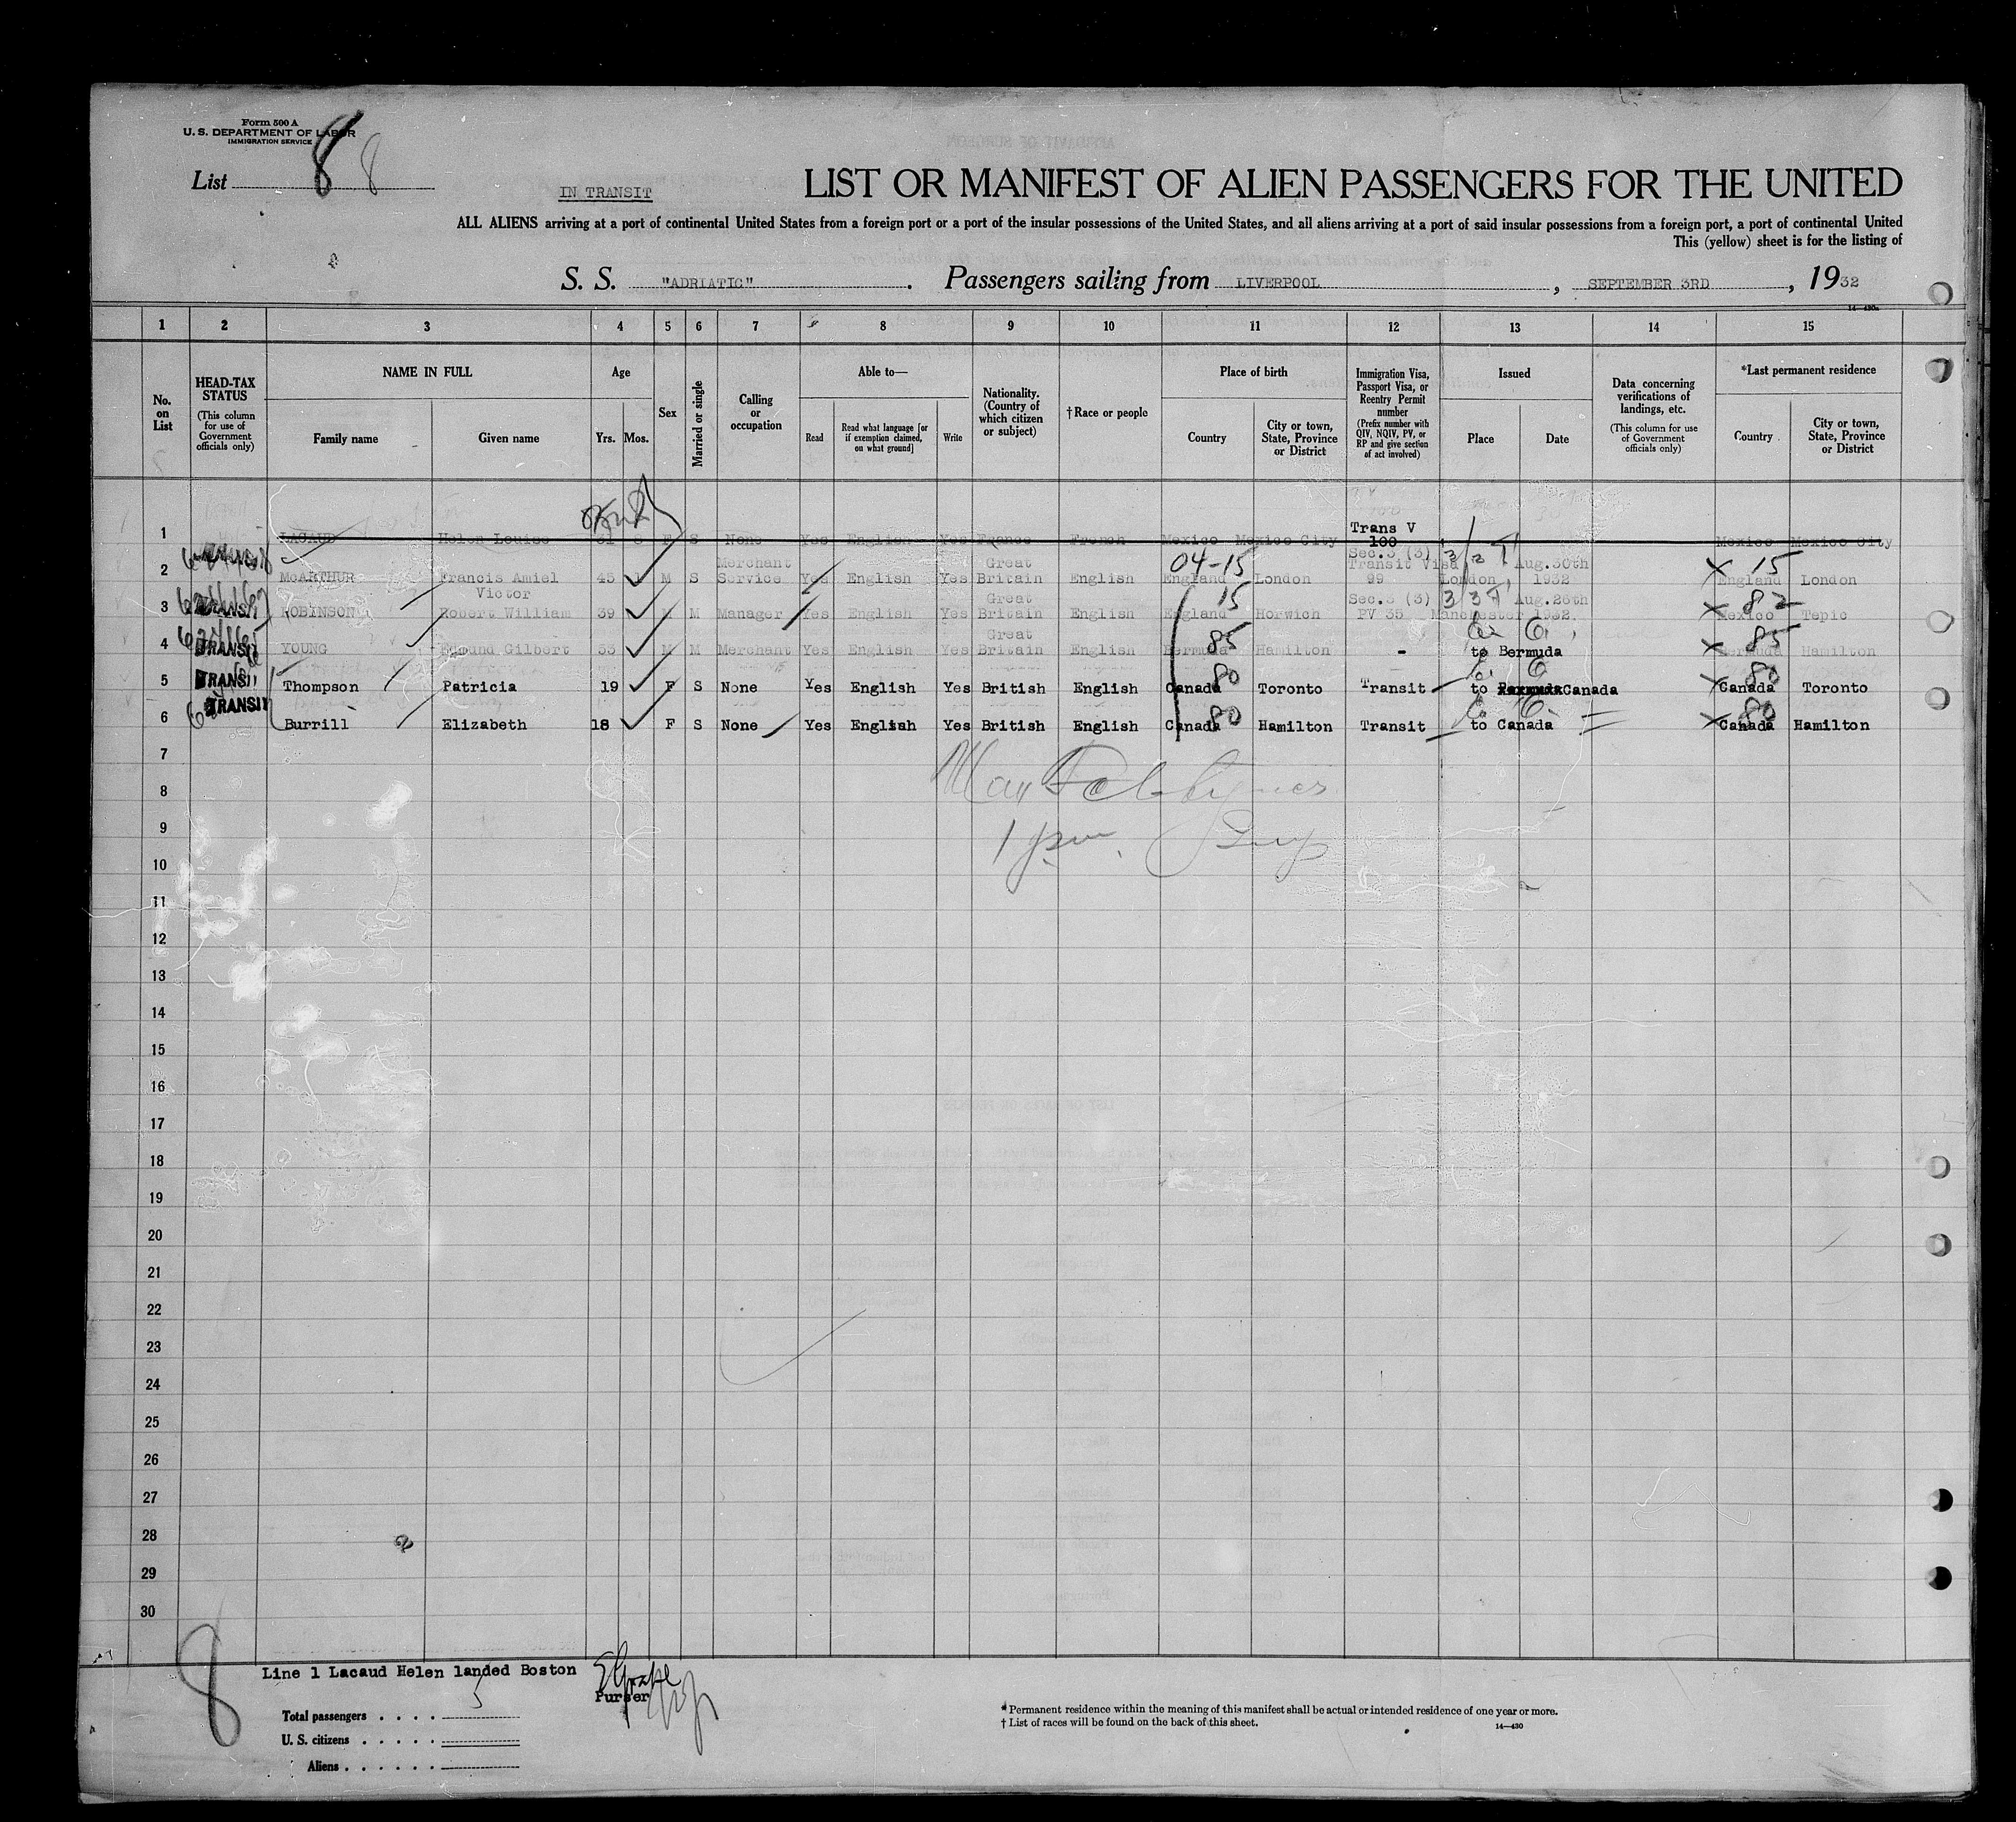 Form 500 A
U. S. DEPARTMENT OF LABOR
IMMIGRATION SERVICE
List 8 8
IN TRANSIT
LIST OR MANIFEST OF ALIEN PASSENGERS FOR THE UNITED
ALL ALIENS arriving at a port of continental United States from a foreign port or a port of the insular possessions of the United States, and all aliens arriving at a port of said insular possessions from a foreign port, a port of continental United
This (yellow) sheet is for the listing of
S. S. "ADRIATIC" . Passengers sailing from LIVERPOOL , SEPTEMBER 3RD , 1932
14—430a
1 2 3 4 5 6 7 8 9 10 11 12 13 14 15
No. on List
HEAD-TAX STATUS (This column for use of Government officials only)
NAME IN FULL
Family name Given name
Age
Yrs. Mos.
Sex
Married or single
Calling or occupation
Able to—
Read
Read what language [or if exemption claimed, on what ground]
Write
Nationality. (Country of which citizen or subject)
† Race or people
Place of birth
Country
City or town, State, Province or District
Immigration Visa, Passport Visa, or Reentry Permit number (Prefix number with QIV, NQIV, PV, or RP and give section of act involved)
Issued
Place Date
Data concerning verifications of landings, etc. (This column for use of Government officials only)
*Last permanent residence
Country
City or town, State, Province or District
Trans V
1 LACAUD Helen Louise 31 8 F S None Yes English Yes France French Mexico Mexico City 100 Mexico Mexico City
Merchant Great 04-15 Sec.3 (3) 15
Transit Visa Aug.30th
2 McARTHUR Francis Amiel 45 1 M S Service Yes English Yes Britain English England London 99 London 1932 England London
Victor Great 15 Sec.3 (3) Aug.26th 82
3 TRANSIT ROBINSON Robert William 39 M M Manager Yes English Yes Britain English England Horwich PV 35 Manchester 1932. Mexico Tepic
Great 85 85
4 TRANSIT YOUNG Edmund Gilbert 33 M M Merchant Yes English Yes Britain English Bermuda Hamilton - to Bermuda Bermuda Hamilton
80 80
5 TRANSIT Thompson Patricia 19 F S None Yes English Yes British English Canada Toronto Transit to Bermuda Canada Canada Toronto
80 80
6 TRANSIT Burrill Elizabeth 18 F S None Yes English Yes British English Canada Hamilton Transit to Canada Canada Hamilton
7
8
9
10
11
12
13
14
15
16
17
18
19
20
21
22
23
24
25
26
27
28
29
30
8
Line 1 Lacaud Helen landed Boston
Purser
Total passengers . . . . 5
U. S. citizens . . . . .
Aliens . . . . . .
* Permanent residence within the meaning of this manifest shall be actual or intended residence of one year or more.
† List of races will be found on the back of this sheet.
14—430